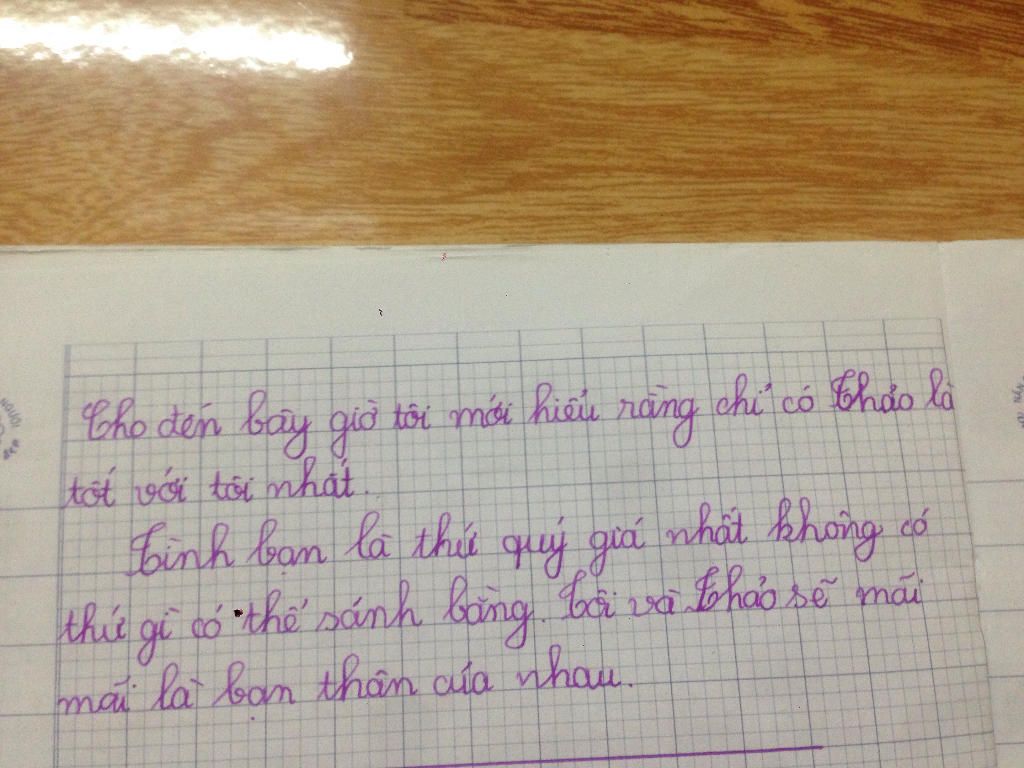 Cho đến bây giờ tôi mới hiểu rằng chỉ có Thảo là
tốt với tôi nhất.
Tình bạn là thứ quý giá nhất không có
thứ gì có thể sánh bằng. Tôi và Thảo sẽ mãi
mãi là bạn thân của nhau.